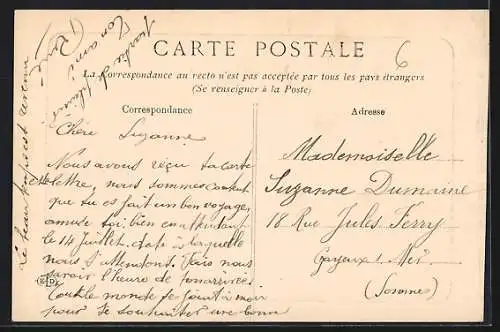 CARTE POSTALE
La Correspondance au recto n'est pas acceptée par tous les pays étrangers
(Se renseigner à la Poste)
Correspondance
Adresse
6
Chère Suzanne
Nous avons reçu ta carte
lettre, nous sommes content
que tu es fait un bon voyage,
amuse toi bien en attendant
le 14 Juillet, date à laquelle
nous t'attendons. Fais nous
savoir l'heure de ton arrivée.
Tout le monde se joint à moi
pour te souhaiter une bonne
Mademoiselle
Suzanne Dumaine
18 Rue Jules Ferry
(Somme)
Le beau temps est revenu
Ton ami
René
ED